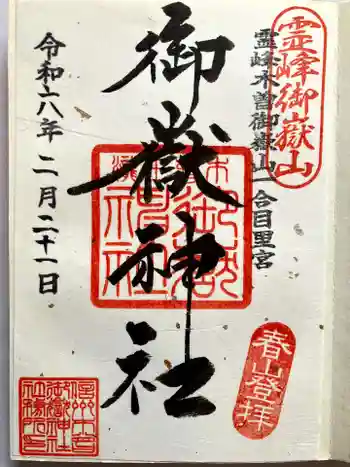 霊峰御嶽山
霊峰木曽御嶽山一合目里宮
御嶽神社
春山登拝
令和六年二月二十一日